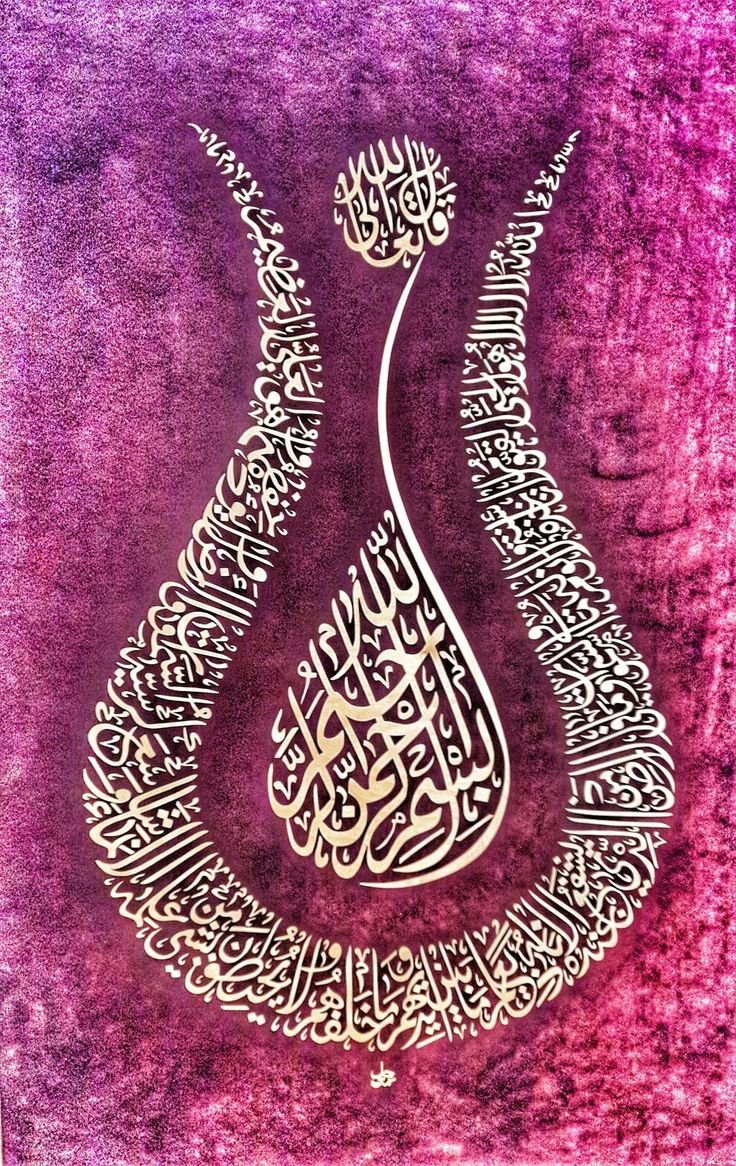 قال الله تعالى
بسم الله الرحمن الرحيم
الله لا إله إلا هو الحي القيوم لا تأخذه سنة ولا نوم له ما في السموات وما في الأرض من ذا الذي يشفع عنده إلا بإذنه يعلم ما بين أيديهم وما خلفهم ولا يحيطون بشيء من علمه إلا بما شاء وسع كرسيه السموات والأرض ولا يؤده حفظهما وهو العلي العظيم